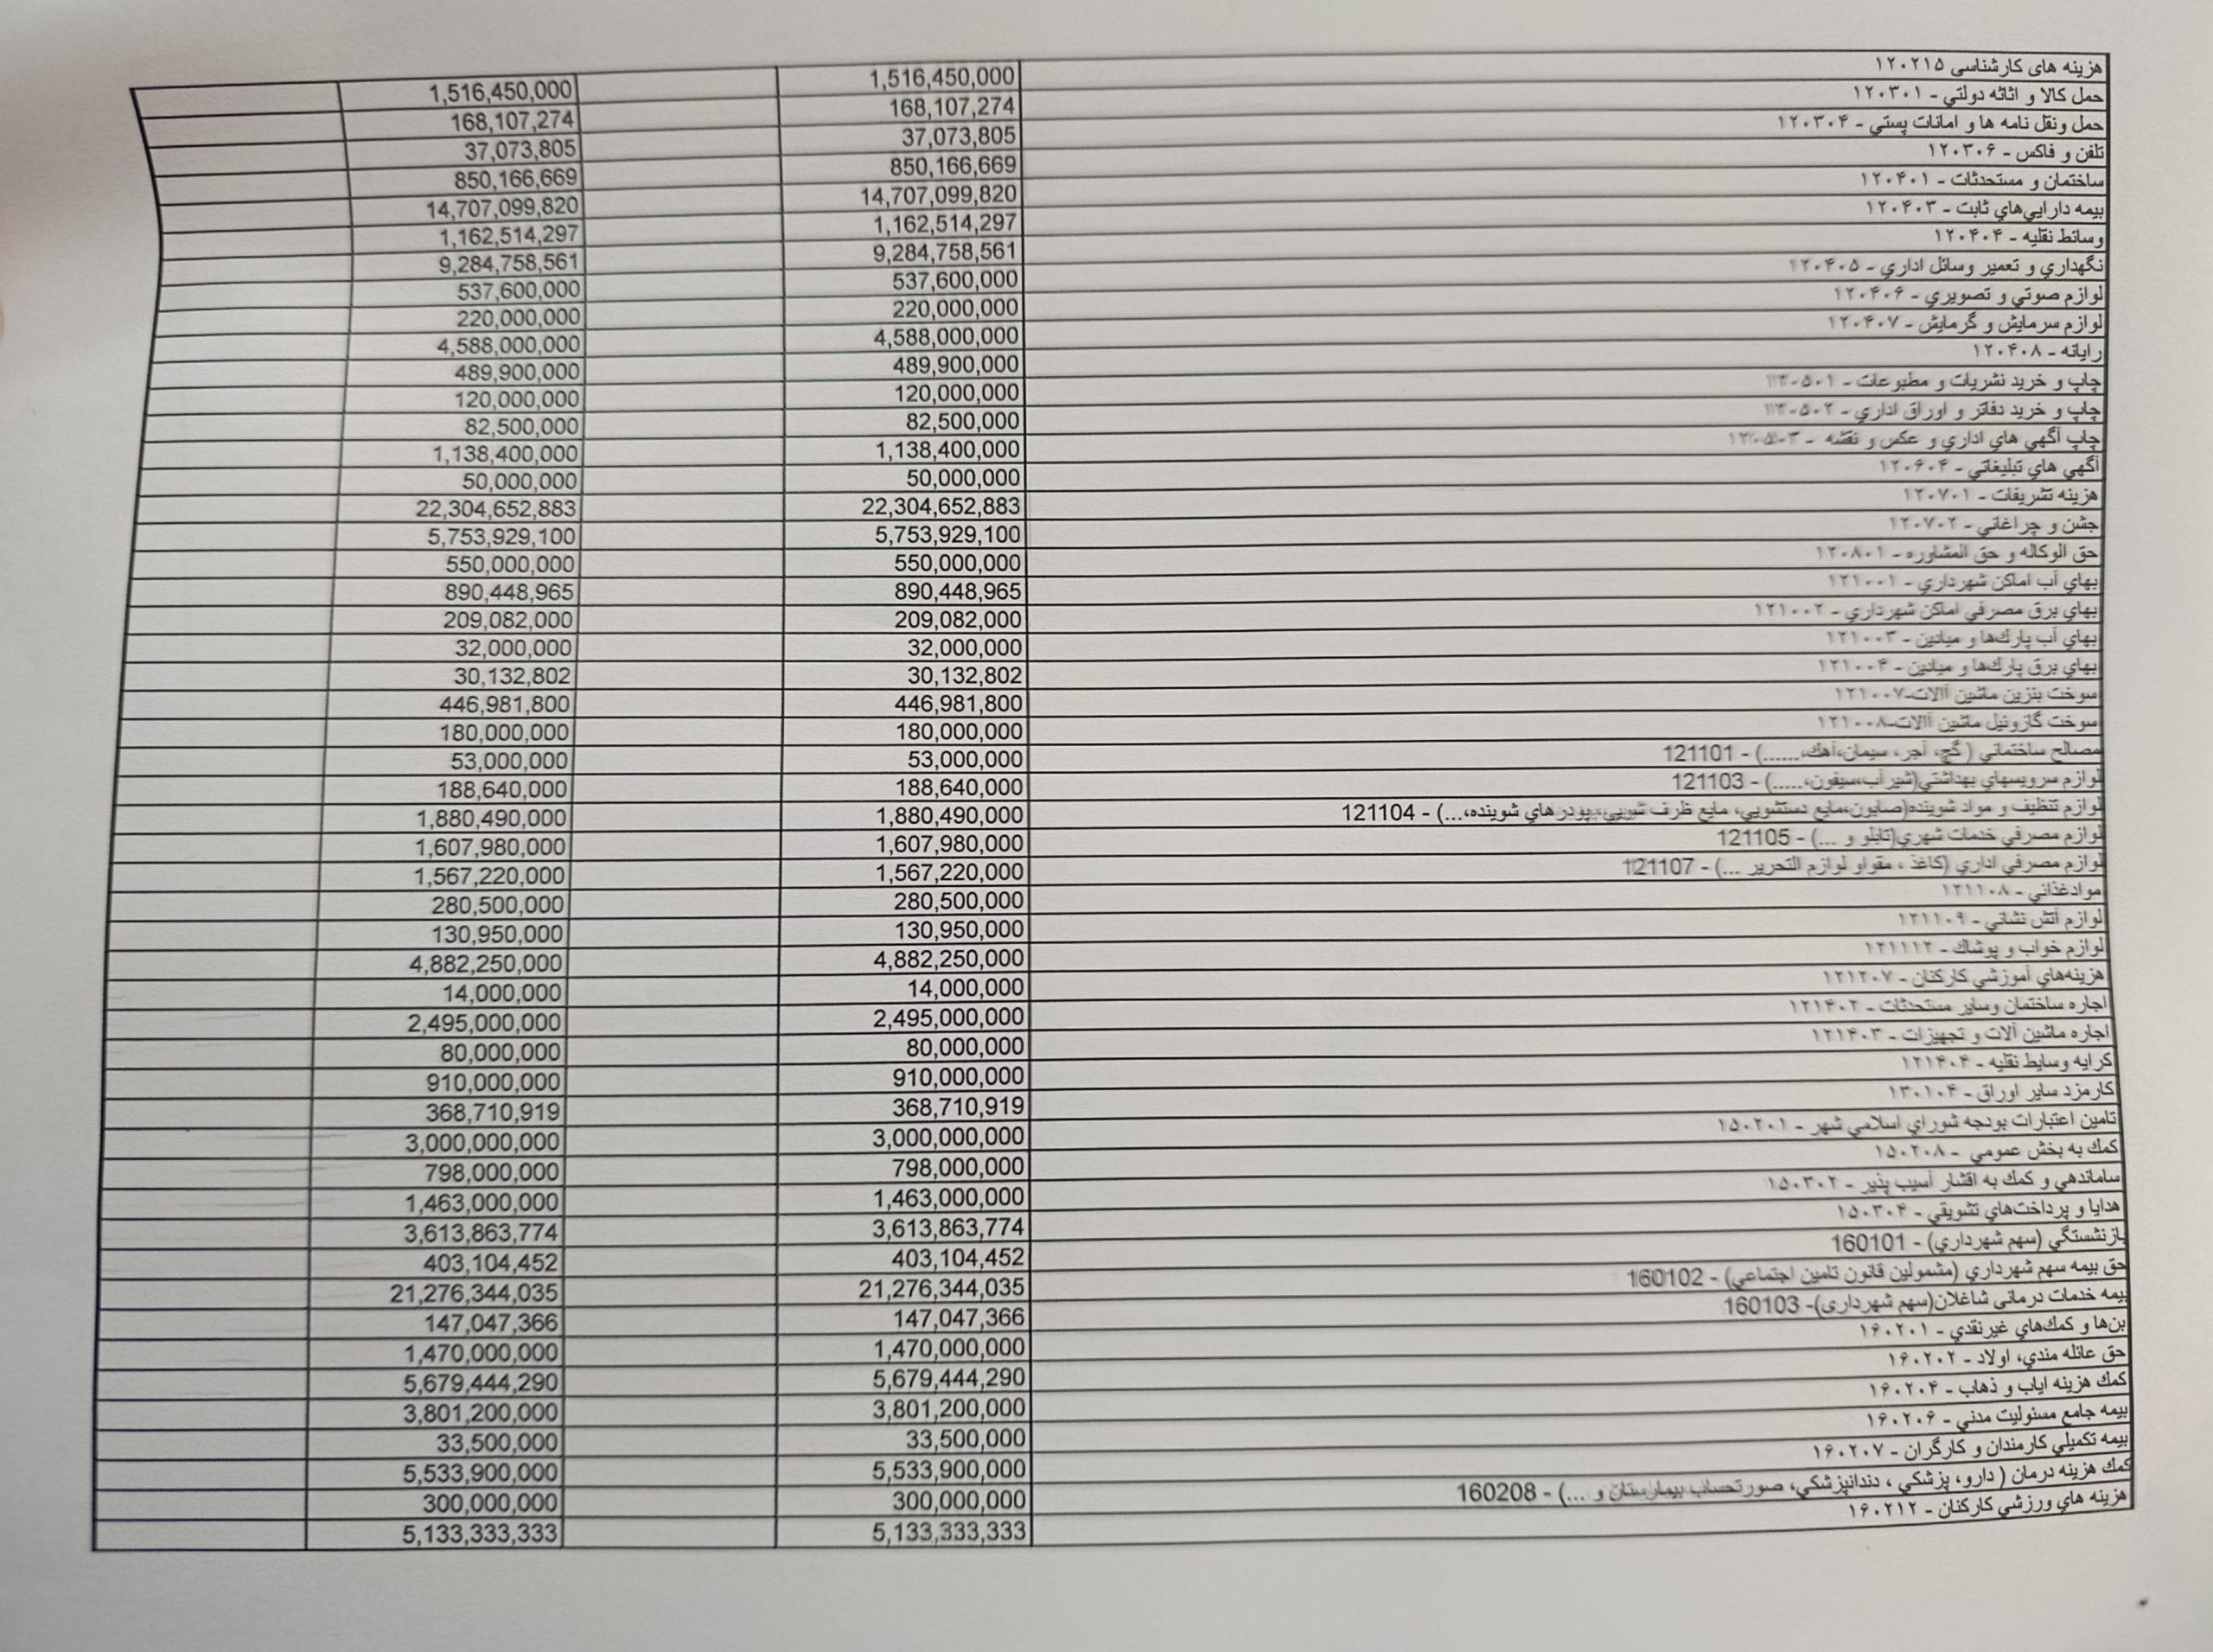 هزینه های کارشناسی ۱۲۰۲۱۵ 1,516,450,000 1,516,450,000
حمل كالا و اثاثه دولتي - ۱۲۰۳۰۱ 168,107,274 168,107,274
حمل ونقل نامه ها و امانات پستي - ۱۲۰۳۰۴ 37,073,805 37,073,805
تلفن و فاكس - ۱۲۰۳۰۶ 850,166,669 850,166,669
ساختمان و مستحدثات - ۱۲۰۴۰۱ 14,707,099,820 14,707,099,820
بيمه دارايي‌هاي ثابت - ۱۲۰۴۰۳ 1,162,514,297 1,162,514,297
وسائط نقليه - ۱۲۰۴۰۴ 9,284,758,561 9,284,758,561
نگهداري و تعمير وسائل اداري - ۱۲۰۴۰۵ 537,600,000 537,600,000
لوازم صوتي و تصويري - ۱۲۰۴۰۶ 220,000,000 220,000,000
لوازم سرمايش و گرمايش - ۱۲۰۴۰۷ 4,588,000,000 4,588,000,000
رايانه - ۱۲۰۴۰۸ 489,900,000 489,900,000
چاپ و خريد نشريات و مطبوعات - ۱۲۰۵۰۱ 120,000,000 120,000,000
چاپ و خريد دفاتر و اوراق اداري - ۱۲۰۵۰۲ 82,500,000 82,500,000
چاپ آگهي هاي اداري و عكس و نقشه - ۱۲۰۵۰۳ 1,138,400,000 1,138,400,000
آگهي هاي تبليغاتي - ۱۲۰۶۰۴ 50,000,000 50,000,000
هزينه تشريفات - ۱۲۰۷۰۱ 22,304,652,883 22,304,652,883
جشن و چراغاني - ۱۲۰۷۰۲ 5,753,929,100 5,753,929,100
حق الوكاله و حق المشاوره - ۱۲۰۸۰۱ 550,000,000 550,000,000
بهاي آب اماكن شهرداري - ۱۲۱۰۰۱ 890,448,965 890,448,965
بهاي برق مصرفي اماكن شهرداري - ۱۲۱۰۰۲ 209,082,000 209,082,000
بهاي آب پارك‌ها و ميادين - ۱۲۱۰۰۳ 32,000,000 32,000,000
بهاي برق پارك‌ها و ميادين - ۱۲۱۰۰۴ 30,132,802 30,132,802
سوخت بنزين ماشين آالات-۱۲۱۰۰۷ 446,981,800 446,981,800
سوخت گازوئيل ماشين آالات-۱۲۱۰۰۸ 180,000,000 180,000,000
مصالح ساختماني ( گچ، آجر، سيمان،آهك،......) - 121101 53,000,000 53,000,000
لوازم سرويسهاي بهداشتي(شيرآب،سيفون،.....) - 121103 188,640,000 188,640,000
لوازم تنظيف و مواد شوينده(صابون،مايع دستشويي، مايع ظرف شويي،پودرهاي شوينده،...) - 121104 1,880,490,000 1,880,490,000
لوازم مصرفي خدمات شهري(تابلو و ...) - 121105 1,607,980,000 1,607,980,000
لوازم مصرفي اداري (كاغذ ، مقواو لوازم التحرير ...) - 121107 1,567,220,000 1,567,220,000
موادغذائي - ۱۲۱۱۰۸ 280,500,000 280,500,000
لوازم آتش نشاني - ۱۲۱۱۰۹ 130,950,000 130,950,000
لوازم خواب و پوشاك - ۱۲۱۱۱۲ 4,882,250,000 4,882,250,000
هزينه‌هاي آموزشي كاركنان - ۱۲۱۲۰۷ 14,000,000 14,000,000
اجاره ساختمان وساير مستحدثات - ۱۲۱۴۰۲ 2,495,000,000 2,495,000,000
اجاره ماشين آلات و تجهيزات - ۱۲۱۴۰۳ 80,000,000 80,000,000
كرايه وسايط نقليه - ۱۲۱۴۰۴ 910,000,000 910,000,000
كارمزد ساير اوراق - ۱۳۰۱۰۴ 368,710,919 368,710,919
تامين اعتبارات بودجه شوراي اسلامي شهر - ۱۵۰۲۰۱ 3,000,000,000 3,000,000,000
كمك به بخش عمومي - ۱۵۰۲۰۸ 798,000,000 798,000,000
ساماندهي و كمك به اقشار آسيب پذير - ۱۵۰۳۰۲ 1,463,000,000 1,463,000,000
هدايا و پرداخت‌هاي تشويقي - ۱۵۰۳۰۴ 3,613,863,774 3,613,863,774
بازنشستگي (سهم شهرداري) - 160101 403,104,452 403,104,452
حق بيمه سهم شهرداري (مشمولين قانون تامين اجتماعي) - 160102 21,276,344,035 21,276,344,035
بیمه خدمات درمانی شاغلان(سهم شهرداری)- 160103 147,047,366 147,047,366
بن‌ها و كمك‌هاي غيرنقدي - ۱۶۰۲۰۱ 1,470,000,000 1,470,000,000
حق عائله مندي، اولاد - ۱۶۰۲۰۲ 5,679,444,290 5,679,444,290
كمك هزينه اياب و ذهاب - ۱۶۰۲۰۴ 3,801,200,000 3,801,200,000
بيمه جامع مسئوليت مدني - ۱۶۰۲۰۶ 33,500,000 33,500,000
بيمه تكميلي كارمندان و كارگران - ۱۶۰۲۰۷ 5,533,900,000 5,533,900,000
كمك هزينه درمان ( دارو، پزشكي ، دندانپزشكي، صورتحساب بيمارستان و ...) - 160208 300,000,000 300,000,000
هزينه هاي ورزشي كاركنان - ۱۶۰۲۱۲ 5,133,333,333 5,133,333,333